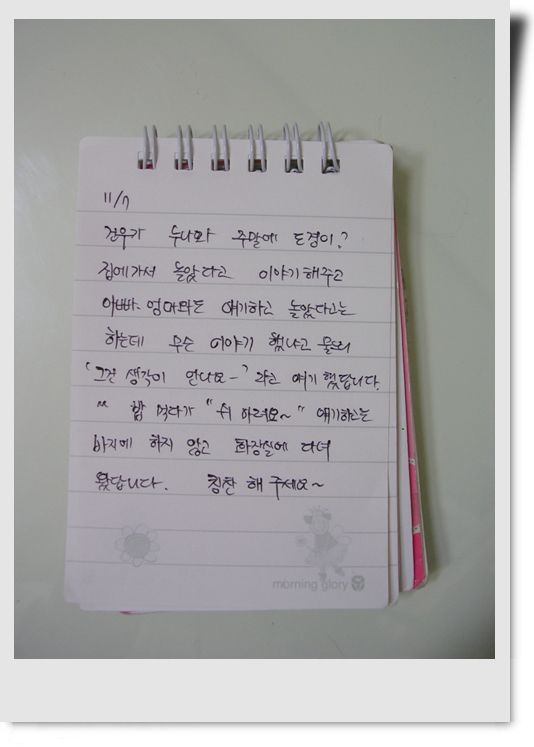 11/7
건우가 누나와 주말에 도경이?
집에가서 놀았다고 이야기해주고
아빠, 엄마와는 얘기하고 놀았다고는
하는데 무슨 이야기 했냐고 물으니
'그건 생각이 안나요~' 라고 얘기했답니다.
^^ 밥 먹다가 "쉬 하려요~" 얘기하고는
바지에 하지 않고 화장실에 다녀
왔답니다. 칭찬 해 주세요~
morning glory